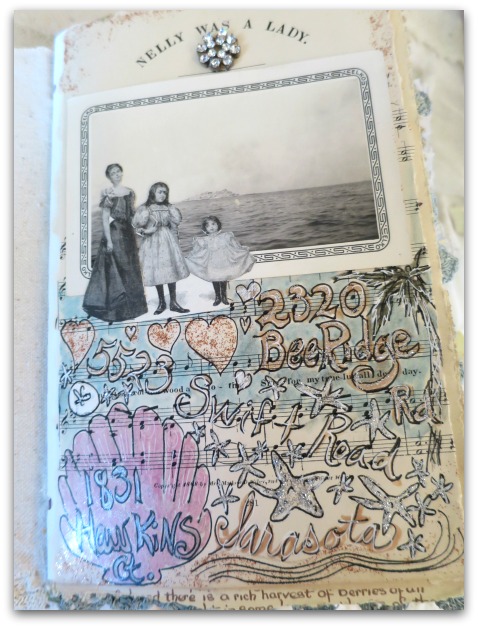 NELLY WAS A LADY.
2320
BeeRidge
Rd
5523
Swift Road
1831
HawKINS
Ct.
Sarasota
there is a rich harvest of berries of all